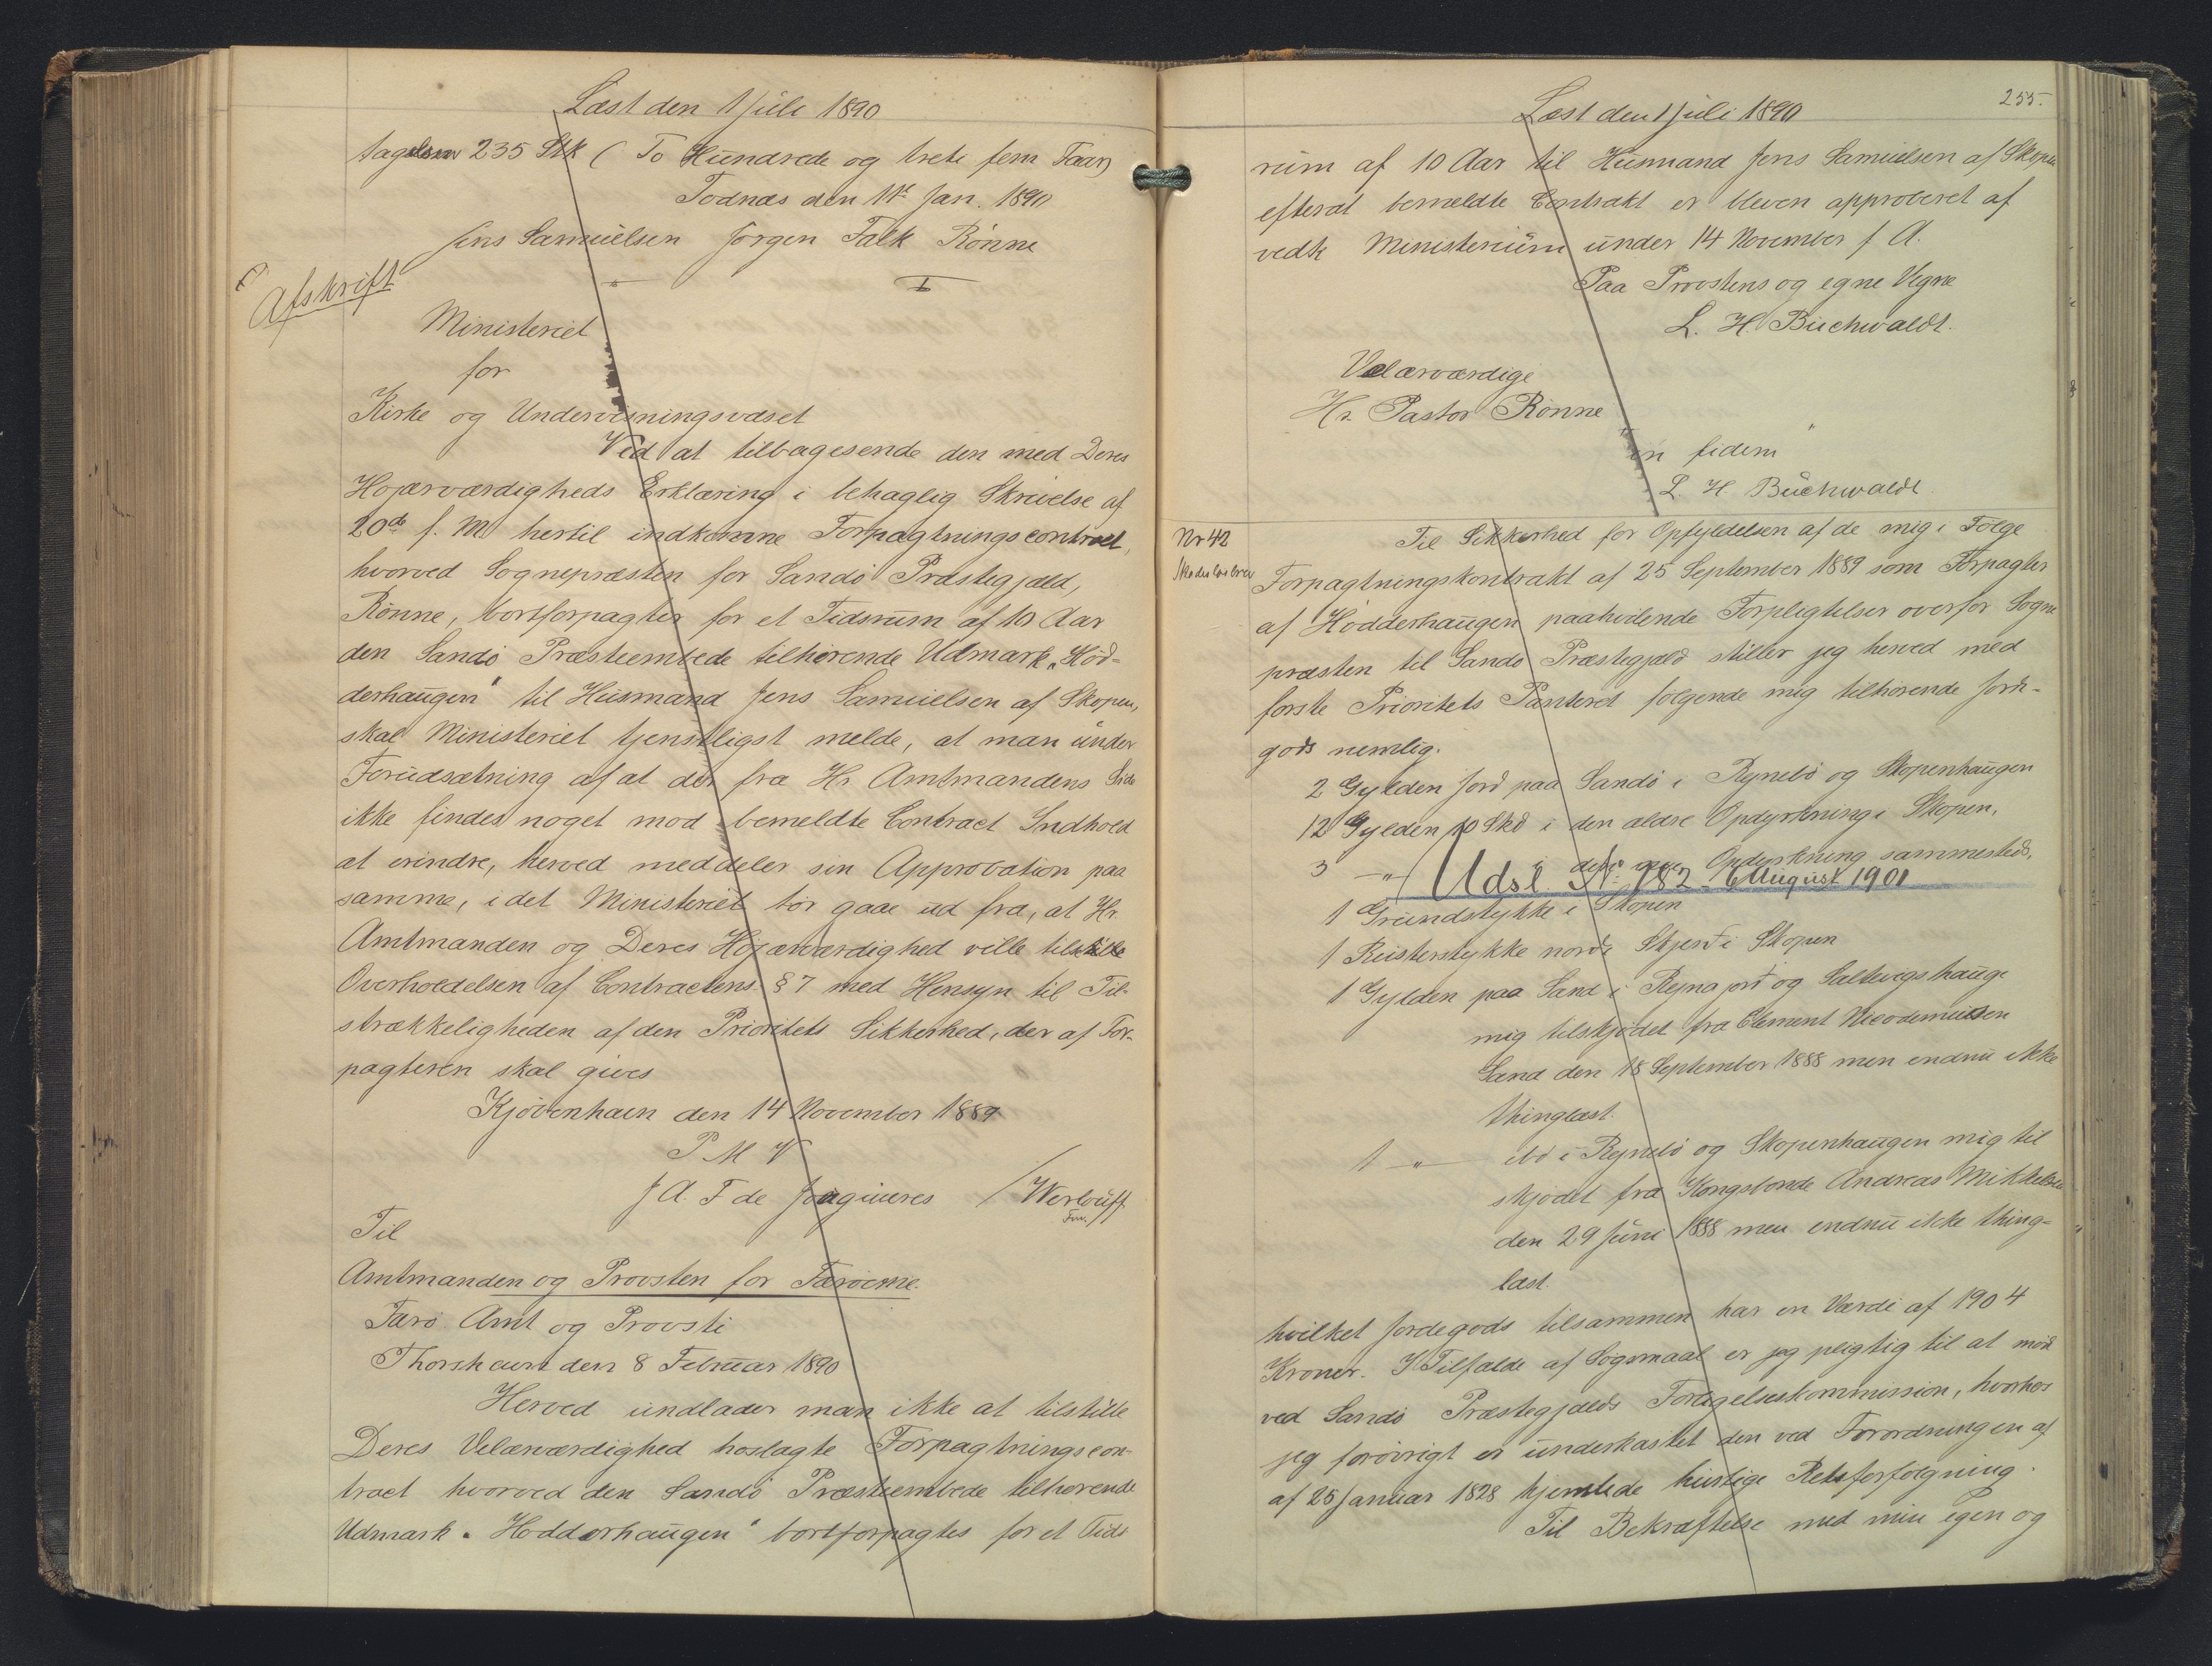 Læst den 1 Juli 1890
tagelsen 235 Stk (To Hundrede og treti fem Faar)
Todnæs den 11te Jan. 1890
Jens Samuelsen Jørgen Falk Rönne
Afskrift
Ministeriet
for
Kirke og Undervisningsvæset
Ved at tilbagesende den med Deres
Højærværdigheds Erklæring i behaglig Skrivelse af
20de f. M. hertil indkomne Forpagtningscontract,
hvorved Sognepræsten for Sandö Præstegjæld,
Rönne, bortforpagter for et Tidsrum af 10 Aar
den Sandö Præsteembede tilhörende Udmark „Höd-
derhaugen" til Husmand Jens Samuelsen af Skopen,
skal Ministeriet tjenstligst melde, at man under
Forudsætning af at der fra Hr. Amtmandens Side
ikke findes noget mod bemeldte Contract Indhold
at erindre, herved meddeler sin Approbation paa
samme, idet Ministeriet tör gaae ud fra, at Hr.
Amtmanden og Deres Höjærværdighed ville
Overholdelsen af Contractens § 7 med Hensyn til Til-
strækkeligheden af den Prioritets Sikkerhed, der af For-
pagteren skal gives
Kjöbenhavn den 14 November 1889
P M V
J. A. F de Jonquieres / Werlauff
Fm.
Til
Amtmanden og Provsten for Færöerne.
Færö Amt og Provsti
Thorshavn den 8 Februar 1890
Herved undlader man ikke at tilstille
Deres Velærværdighed hoslagte Forpagtningscon-
tract hvorved den Sandö Præsteembede tilhörende
Udmark „Hodderhaugen" bortforpagtes for et Tids
255.
Læst den 1 Juli 1890
rum af 10 Aar til Husmand Jens Samuelsen af Skopen
efterat bemeldte Contrakt er bleven approberet af
vedk Ministerium under 14 November f. A.
Paa Provstens og egne Vegne
L. H. Buchwaldt.
Velærværdige
Hr. Pastor Rönne
in fidem
L. H. Buchwaldt
Nr 42
Skadeslösbrev
Til Sikkerhed for Opfyldelsen af de mig i Fölge
Forpagtningskontrakt af 25 September 1889 som Forpagter
af Hödderhaugen paahvilende Forpligtelser overfor Sogne
præsten til Sandö Præstegjæld stiller jeg herved med
förste Prioritets Panteret fölgende mig tilhörende Jord-
gods nemlig.
2 Gylden Jord paa Sandö i Rynebö og Skopenhaugen
12 Gylden 10 Skd i den ældre Opdyrkning i Skopen,
3 —"— Opdyrkning sammesteds,
Udsl. No 182 6 August 1901
1 Grundstykke i Skopen
1 Reisterstykke nordi Skjerd i Skopen
1 Gylden paa Sand i Rejnajord og Saltevigshauge
mig tilskjödet fra Clement Nicodemussen
Sand den 18 September 1888 men endnu ikke
thinglæst.
1 —"— ibd i Rynebö og Skopenhaugen mig til
skjödet fra Kongsbonde Andreas Mikkelsen
den 29 Juni 1888 men endnu ikke thing-
læst.
hvilket Jordegods tilsammen har en Værdi af 1904
Kroner. I Tilfælde af Sögsmaal er jeg pligtig til at möde
ved Sandö Præstegjælds Forligelseskommission, hvorhos
jeg forövrigt er underkastet den ved Forordningen af
af 25 Januar 1828 hjemlede hurtige Retsforfölgning.
Til Bekræftelse med min egen og